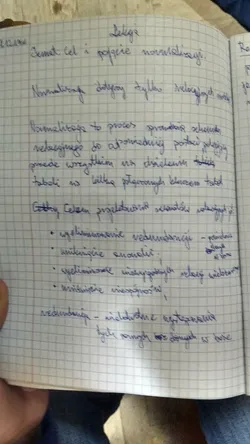 Lekcja
Temat: Cel i pojęcie normalizacji.
Normalizacja dotyczy tylko relacyjnych
Normalizacja to proces sprowadzania schematu
relacyjnego do odpowiedniej postaci polegający
przede wszystkim na dzieleniu
tabeli w kilka połączonych kluczem tabel
Celem projektowania
• wyeliminowanie redundancji -
• uniknięcie anomalii,
• wyeliminowanie
• unikanie niespójności,
redundancja - wielokrotne występowanie
tych samych danych w bazie